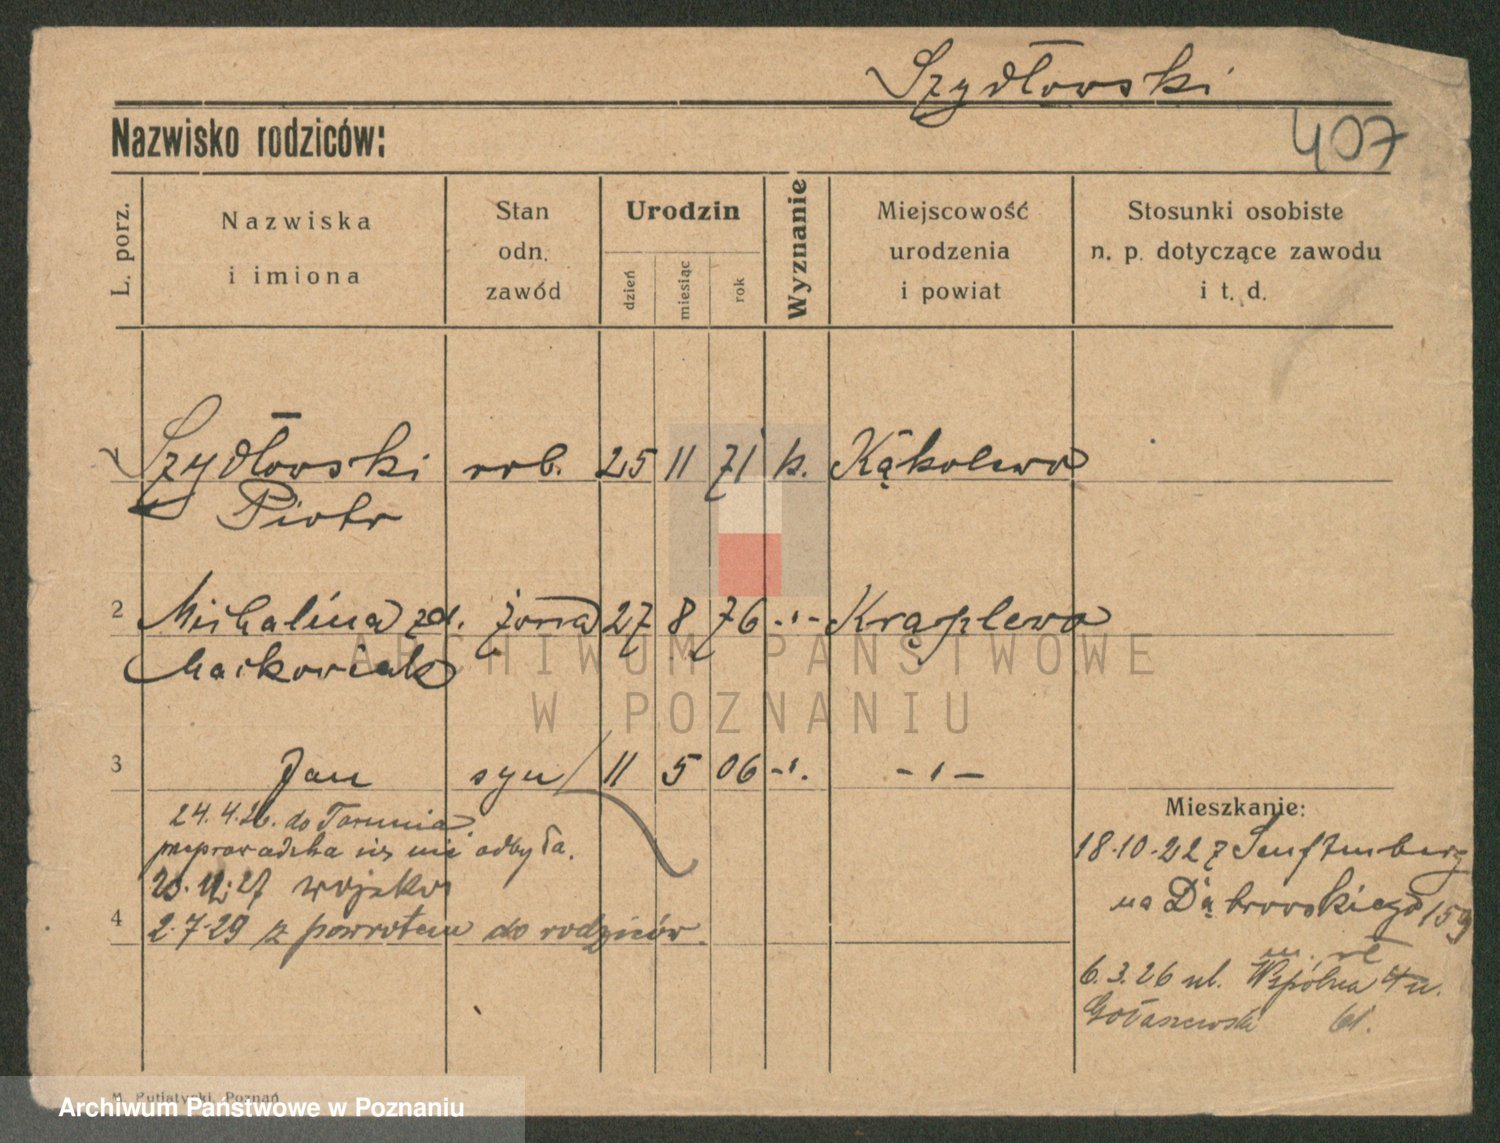 Szydłowski
407
Nazwisko rodziców:
L. porz.
Nazwiska
i imiona
Stan
odn.
zawód
Urodzin
dzień
miesiąc
rok
Wyznanie
Miejscowość
urodzenia
i powiat
Stosunki osobiste
n. p. dotyczące zawodu
i t. d.
1 Szydłowski rob. 25 11 71 k. Kąkolewo
Piotr
2 Michalina zd. żona 27 8 76 -"- Krąplewo
Maćkowiak
3 Jan syn 11 5 06 -"- -"-
24.4.26. do Torunia
przeprowadzka się nie odbyła.
27 wojsko
4 2.7.29 z powrotem do rodziców.
Mieszkanie:
18.10.22 z Senftenberg
na Dąbrowskiego 159
6.3.26 ul. Wspólna
Gołaszewski
ARCHIWUM PAŃSTWOWE
W POZNANIU
M. Putiatycki, Poznań
Archiwum Państwowe w Poznaniu